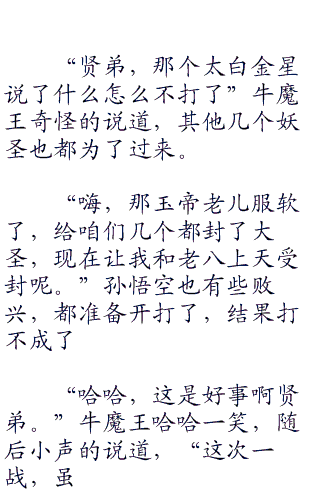 “贤弟，那个太白金星
说了什么怎么不打了”牛魔
王奇怪的说道，其他几个妖
圣也都为了过来。
“嗨，那玉帝老儿服软
了，给咱们几个都封了大
圣，现在让我和老八上天受
封呢。”孙悟空也有些败
兴，都准备开打了，结果打
不成了
“哈哈，这是好事啊贤
弟。”牛魔王哈哈一笑，随
后小声的说道，“这次一
战，虽